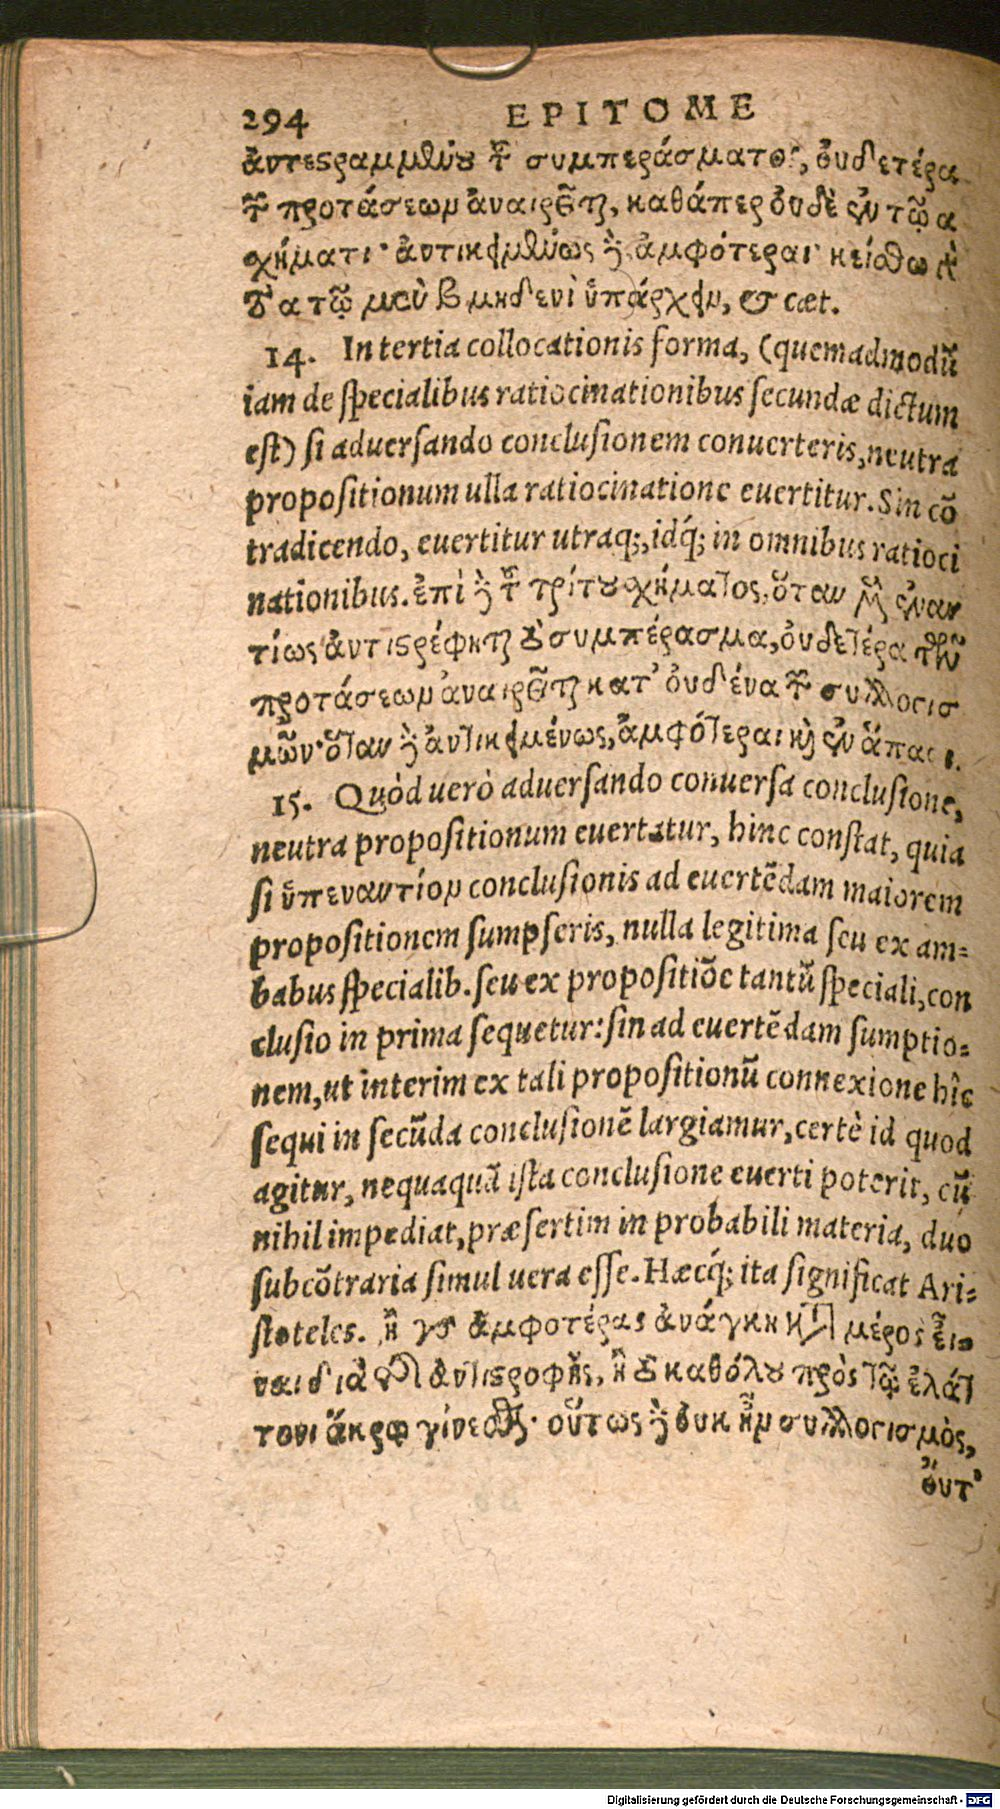 294 EPITOME
ἀντεστραμμένου τ συμπεράσματος, οὐδετέρα
τ προτάσεων ἀναιρεῖται, καθάπερ οὐδὲ ἐν τῷ α
σχήματι· ἀντικειμένως δὲ, ἀμφότεραι· κείσθω γὰρ
τὸ α τῷ μὲν β μηδενὶ ὑπάρχειν, & cæt.
14. In tertia collocationis forma, (quemadmodũ
iam de specialibus ratiocinationibus secundæ dictum
est) si aduersando conclusionem conuerteris, neutra
propositionum ulla ratiocinatione euertitur. Sin cõ
tradicendo, euertitur utraq;, idq́; in omnibus ratioci
nationibus. ἐπὶ δὲ τ τρίτου σχήματος, ὅταν μὲν ἐναν
τίως ἀντιστρέφηται τὸ συμπέρασμα, οὐδετέρα τῶν
προτάσεων ἀναιρεῖται κατ' οὐδένα τ συλλογισ
μῶν· ὅταν δὲ ἀντικειμένως, ἀμφότεραι καὶ ἐν ἅπασι.
15. Quòd uerò aduersando conuersa conclusione,
neutra propositionum euertatur, hinc constat, quia
si ὑπεναντίον conclusionis ad euertẽdam maiorem
propositionem sumpseris, nulla legitima seu ex am=
babus specialib. seu ex propositiõe tantũ speciali, con
clusio in prima sequetur: sin ad euertẽdam sumptio=
nem, ut interim ex tali propositionũ connexione hîc
sequi in secũda conclusionẽ largiamur, certè id quod
agitur, nequaquã ista conclusione euerti poterit, cũ
nihil impediat, præsertim in probabili materia, duo
subcõtraria simul uera esse. Hæcq́; ita significat Ari=
stoteles. ἢ γὰρ ἀμφοτέρας ἀνάγκη κατὰ μέρος εἶ
ναι διὰ τῆς ἀντιστροφῆς, ἢ τὸ καθόλου πρὸς τῷ ἐλάτ
τονι ἄκρῳ γίνεσθαι· οὕτως δὲ οὐκ ἦν συλλογισμὸς,
οὔτ'
Digitalisierung gefördert durch die Deutsche Forschungsgemeinschaft - DFG